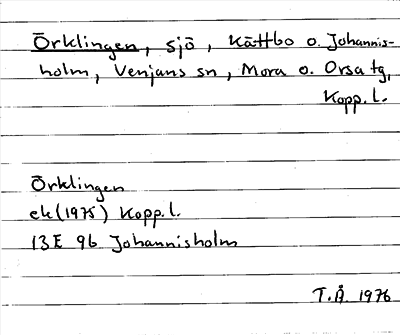 Örklingen, sjö, Kättbo o. Johannis-
holm, Venjans sn, Mora o. Orsa tg,
Kopp. l.
Örklingen
ek (1975) Kopp. l.
13E 9b Johannisholm
T.Å. 1976